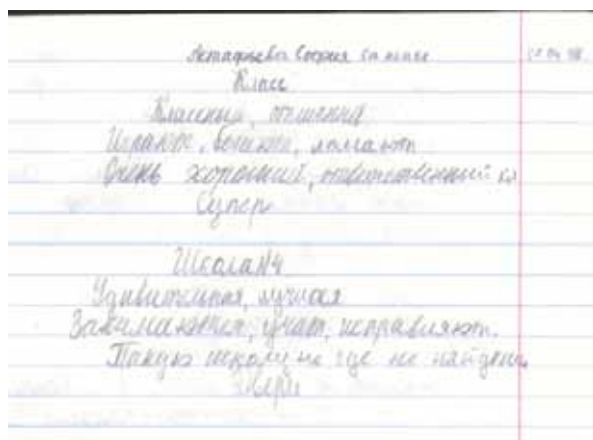 Астафьева София 5а класс
Класс
Классный,
Играют, бегают, ломают
Очень хороший, ответственный кл
Супер
Школа№4
Удивительная, лучшая
Занимаются, учат, исправляют.
Такую школу не где не найдёшь